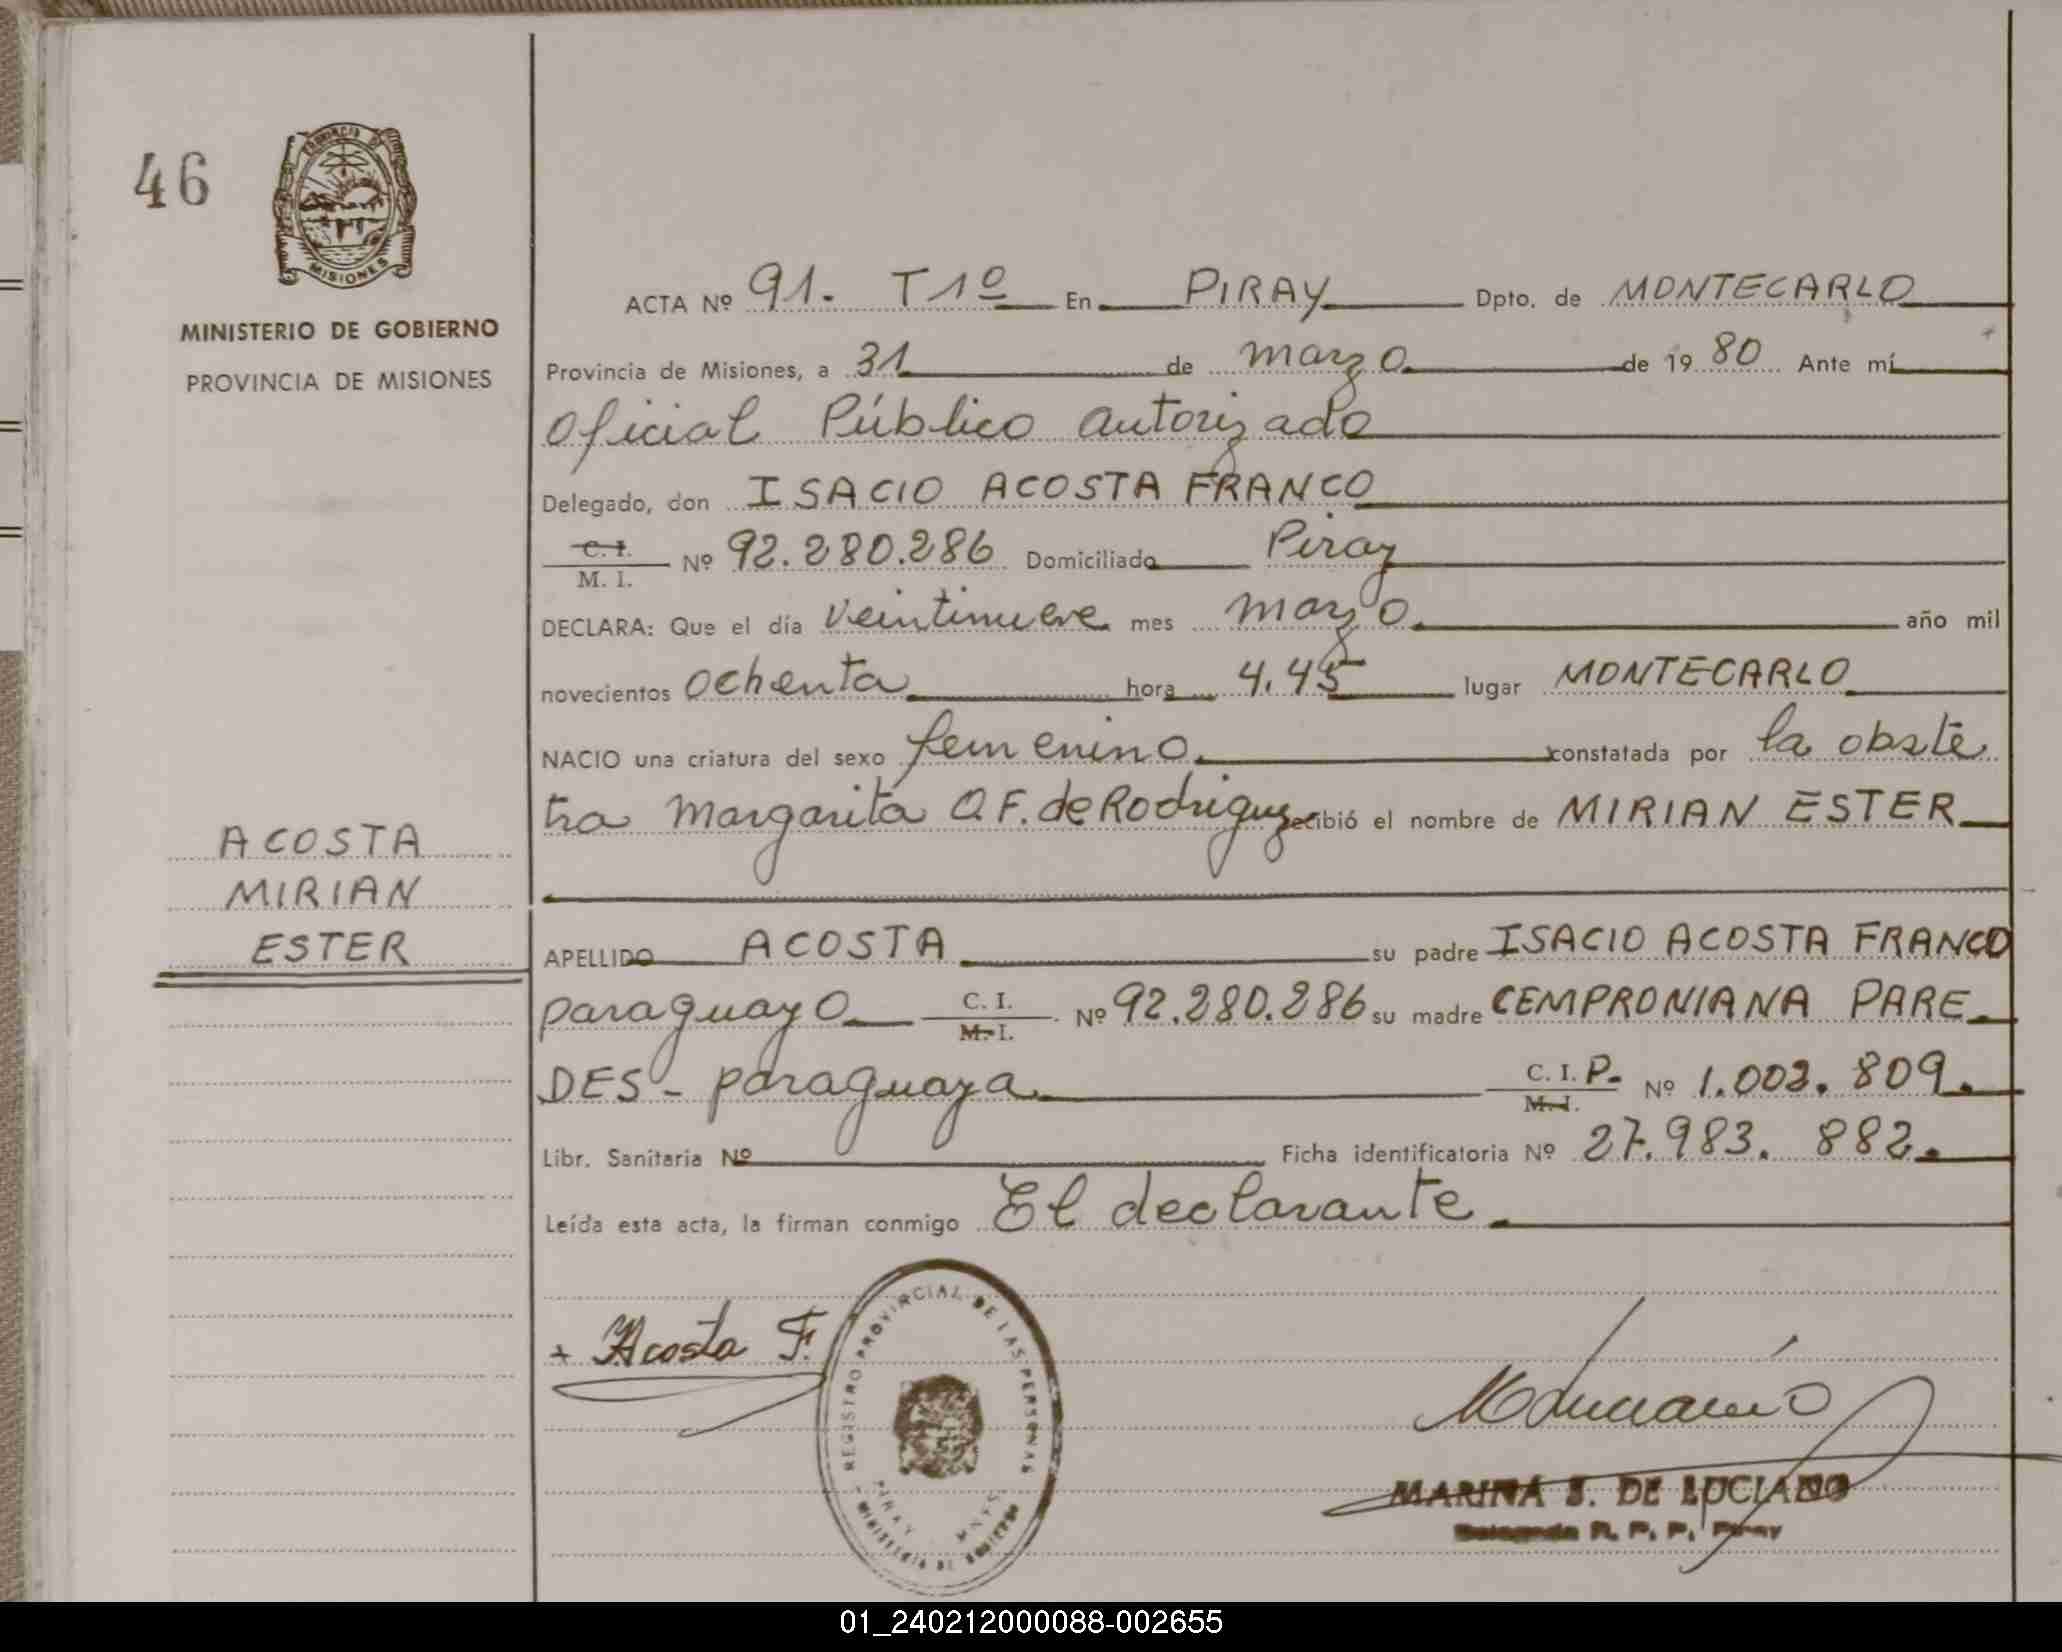 46
PROVINCIA DE
MISIONES
MINISTERIO DE GOBIERNO
PROVINCIA DE MISIONES
ACOSTA
MIRIAN
ESTER
ACTA Nº 91. T1º En PIRAY Dpto. de MONTECARLO
Provincia de Misiones, a 31 de marzo de 1980 Ante mí
Oficial Público autorizado
Delegado, don ISACIO ACOSTA FRANCO
C. I.
M. I. Nº 92.280.286 Domiciliado Piray
DECLARA: Que el día veintinueve mes marzo año mil
novecientos ochenta hora 4.45 lugar MONTECARLO
NACIO una criatura del sexo femenino constatada por la obste
tra Margarita O.F. de Rodriguez recibió el nombre de MIRIAN ESTER
APELLIDO ACOSTA su padre ISACIO ACOSTA FRANCO
paraguayo C. I.
M. I. Nº 92.280.286 su madre CEMPRONIANA PARE
DES - paraguaya C. I. P. Nº 1.003.809.
M. I.
Libr. Sanitaria Nº Ficha identificatoria Nº 27.983.882.
Leída esta acta, la firman conmigo El declarante
+ Acosta F.
REGISTRO PROVINCIAL DE LAS PERSONAS
PIRAY - MNES.
MINISTERIO DE GOBIERNO
MARINA S. DE LUCIANO
Delegada R. P. P. Piray
01_240212000088-002655